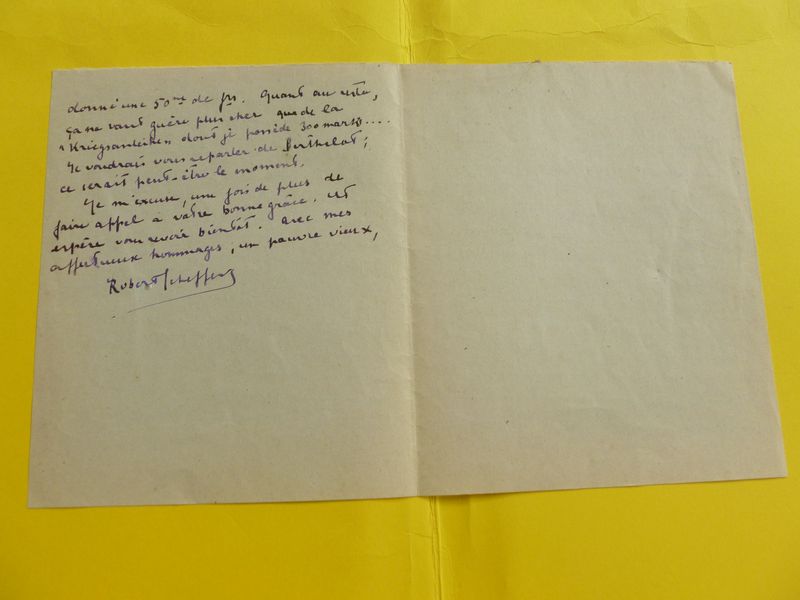 donné une 50ne de frs. Quant au reste,
ça ne vaut guère plus cher que de la
"Kriegsanleihen dont je possède 300 marks....
Je voudrais vous reparler de Berthelot;
ce serait peut-être le moment.
Je m'excuse, une fois de plus de
faire appel à votre bonne grâce. Et
espère vous revoir bientôt. Avec mes
affectueux hommages, un pauvre vieux,
Robert Scheffer